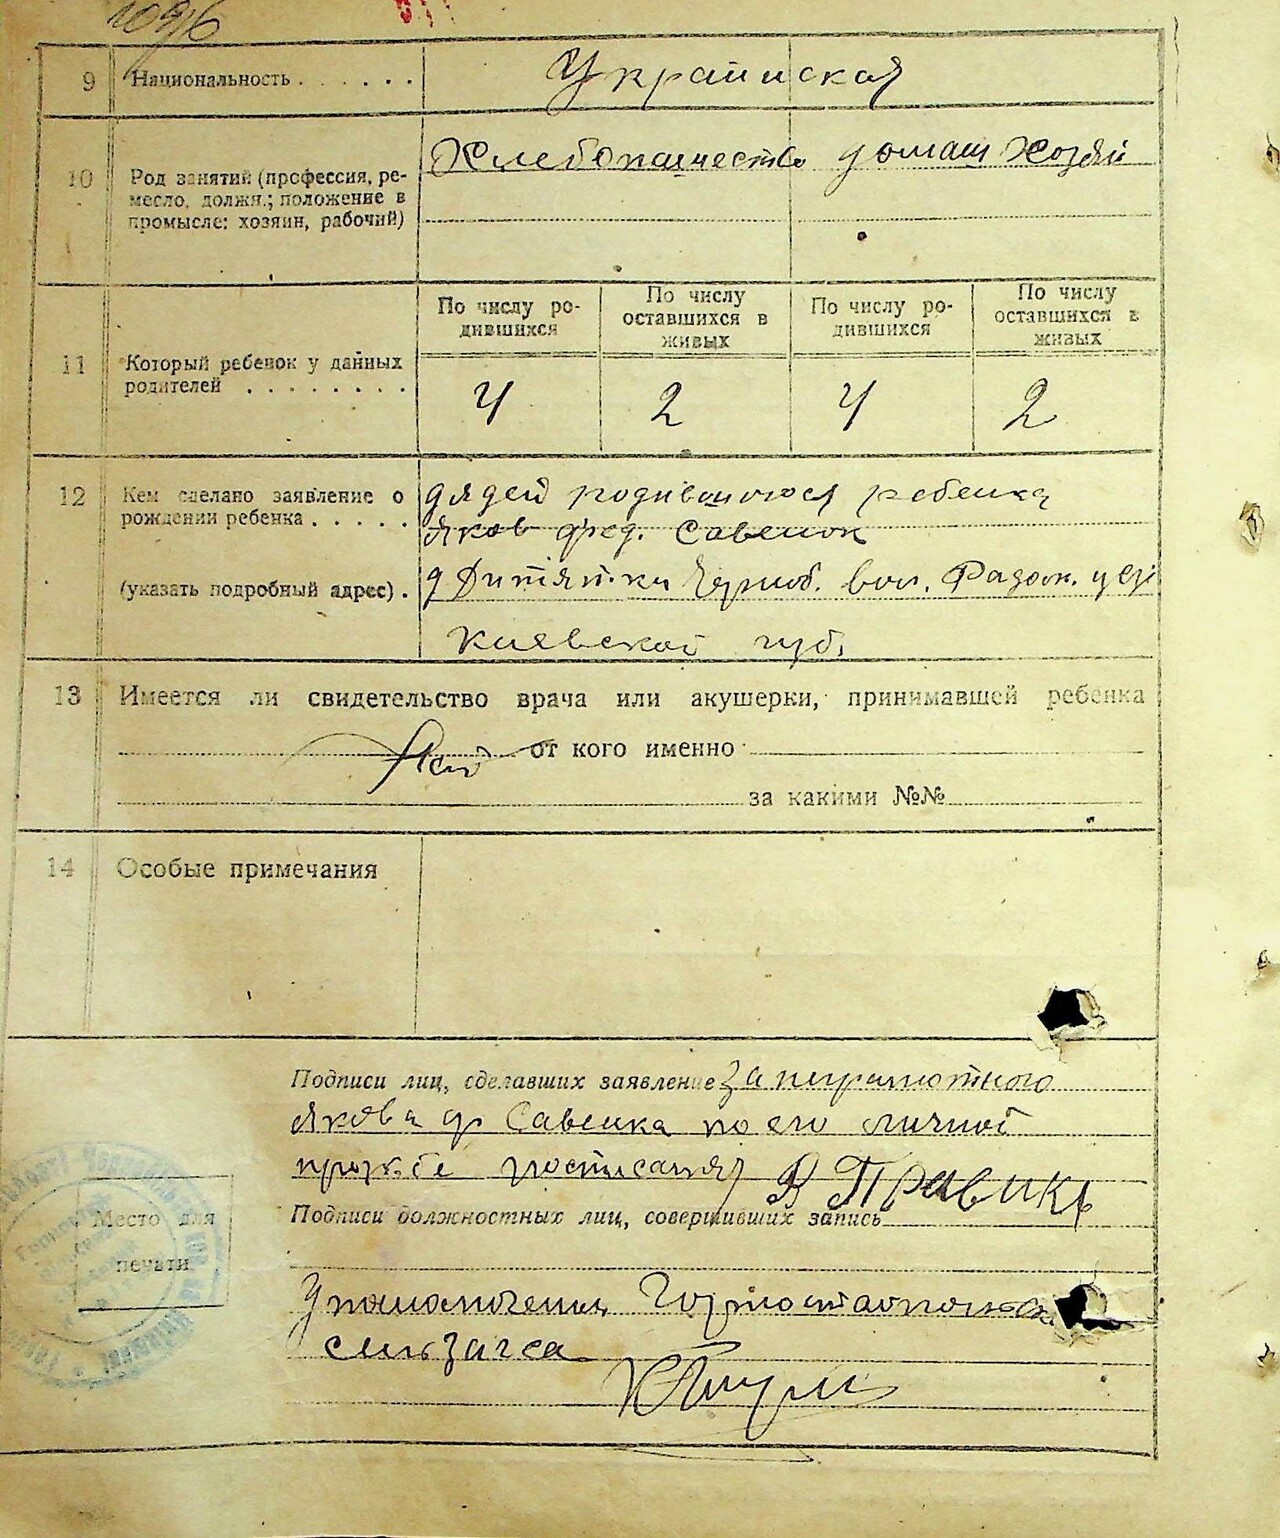 9 Национальность . . . . . . Украинская
10 Род занятий (профессия, ре-
месло, должн.; положение в
промысле: хозяин, рабочий)
Хлебопашество домаш хозяй
11 Который ребенок у данных
родителей . . . . . . . .
По числу ро-
дившихся
По числу
оставшихся в
живых
По числу ро-
дившихся
По числу
оставшихся в
живых
4 2 4 2
12 Кем сделано заявление о
рождении ребенка . . . . .
(указать подробный адрес) .
дядей родившогося ребенка
Яков фед. Савенок
д Дитятки Черноб. вол. Радом. уез
Киевской губ.
13 Имеется ли свидетельство врача или акушерки, принимавшей ребенка
от кого именно
за какими №№
14 Особые примечания
Подписи лиц, сделавших заявление За неграмотного
Якова ф Савенка по его личной
прозбе росписался В Правикъ
Подписи должностных лиц, совершивших запись
Место для
печати
Горностайпольск
сельзагса